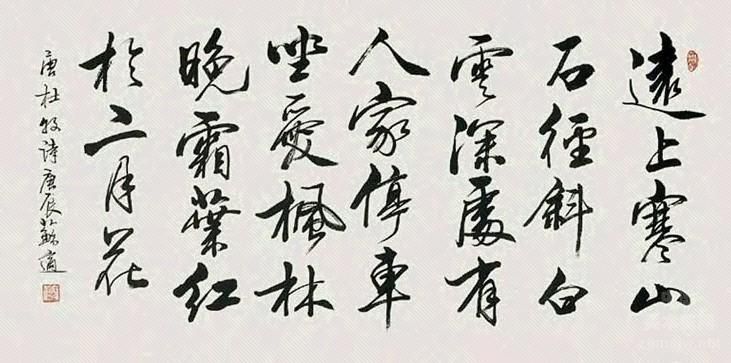 遠上寒山
石徑斜白
雲深處有
人家停車
坐愛楓林
晚霜葉紅
於二月花
唐杜牧詩庚辰蘇適